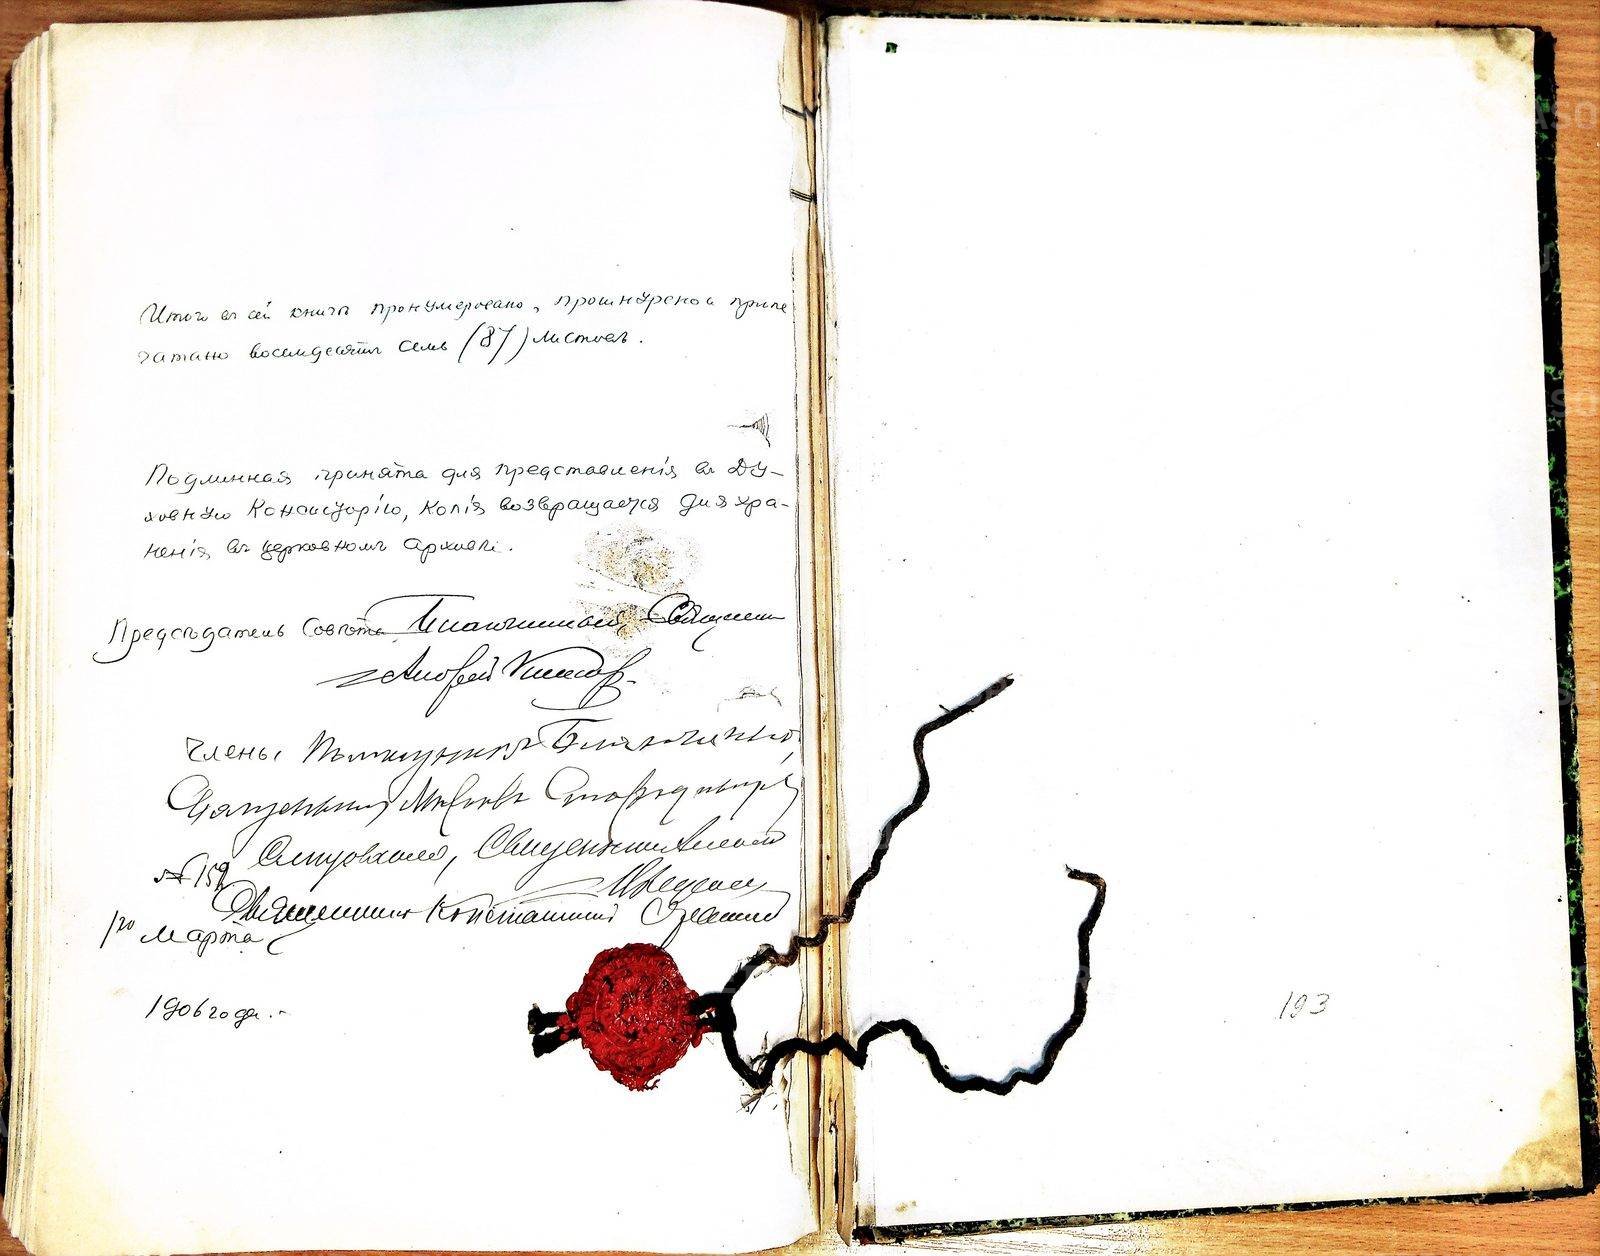 Итого въ сей книгѣ пронумеровано, прошнурено и припе
чатано восемдесятъ семь (87) листовъ.
Подлинная принята для представленія въ Ду-
ховную Консисторію, копія возвращается для хра-
ненія въ церковномъ архивѣ.
Предсѣдатель Совѣта Благочинный, Священникъ
Андрей
Члены Помощникъ Благочиннаго,
Священникъ
Священникъ Алексей
№ 159
Священникъ Константинъ
Марта
1906 года.
193